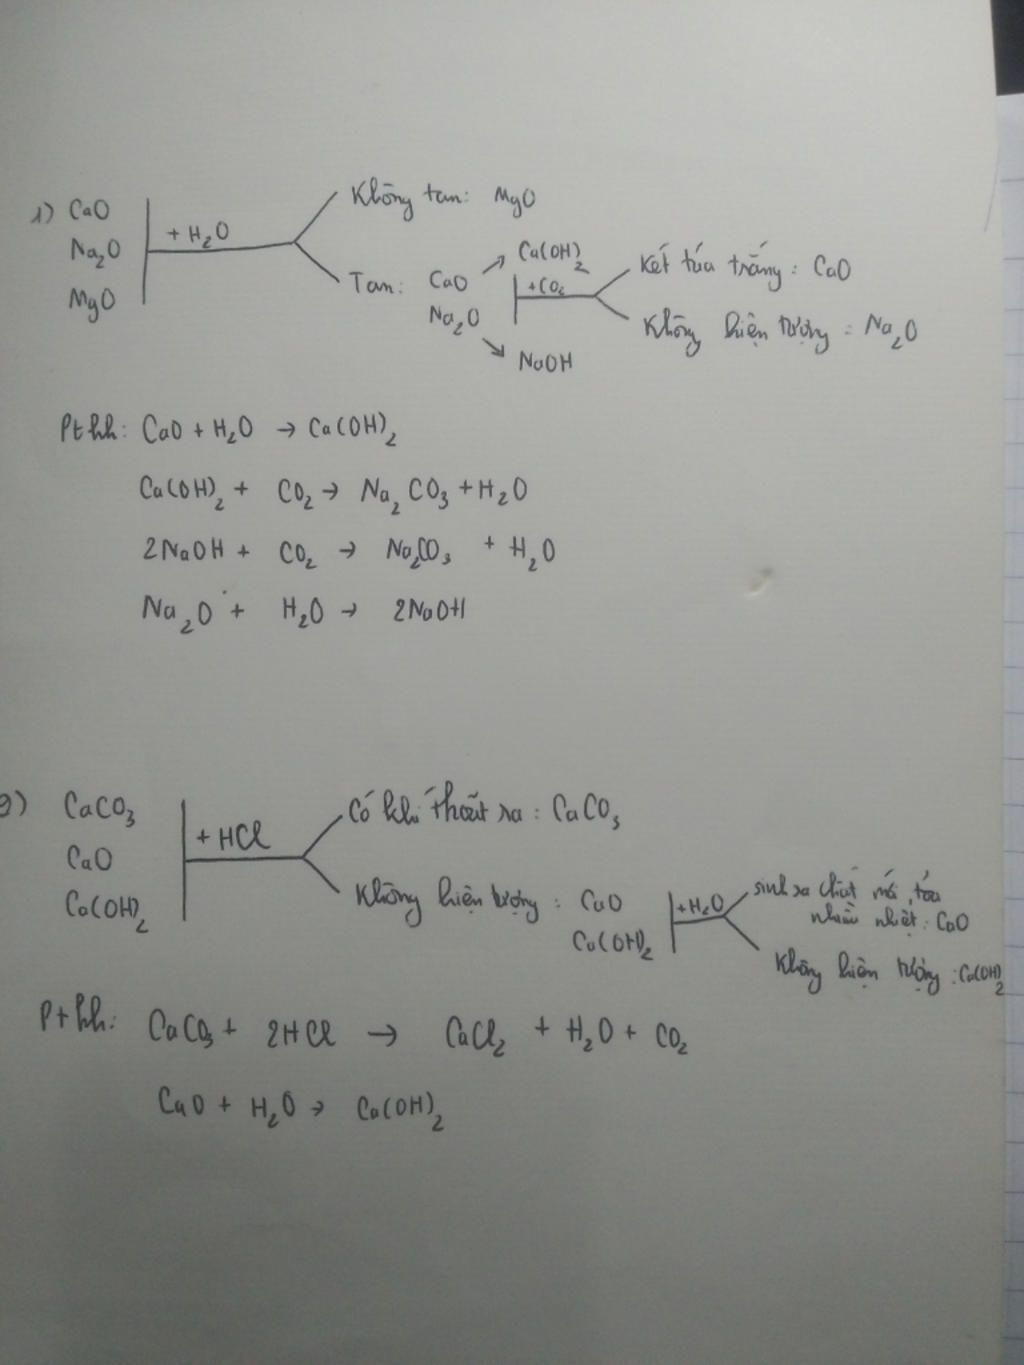 1) CaO
Na2O
MgO
+ H2O
Không tan: MgO
Tan: CaO
Na2O
Ca(OH)2
NaOH
+CO2
Kết tủa trắng: CaO
Không hiện tượng: Na2O
Pthh: CaO + H2O → Ca(OH)2
Ca(OH)2 + CO2 → Na2CO3 + H2O
2NaOH + CO2 → Na2CO3 + H2O
Na2O + H2O → 2NaOH
2) CaCO3
CaO
Ca(OH)2
+ HCl
Có khí thoát ra: CaCO3
Không hiện tượng: CaO
Ca(OH)2
+H2O
sinh ra chất mới, tỏa
nhiều nhiệt: CaO
Không hiện tượng: Ca(OH)2
Pthh: CaCO3 + 2HCl → CaCl2 + H2O + CO2
CaO + H2O → Ca(OH)2